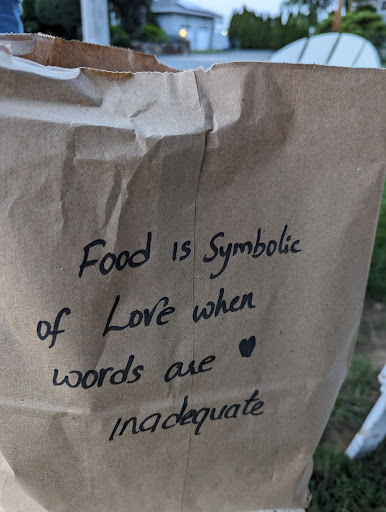 Food is Symbolic
of Love when
words are ♥
inadequate